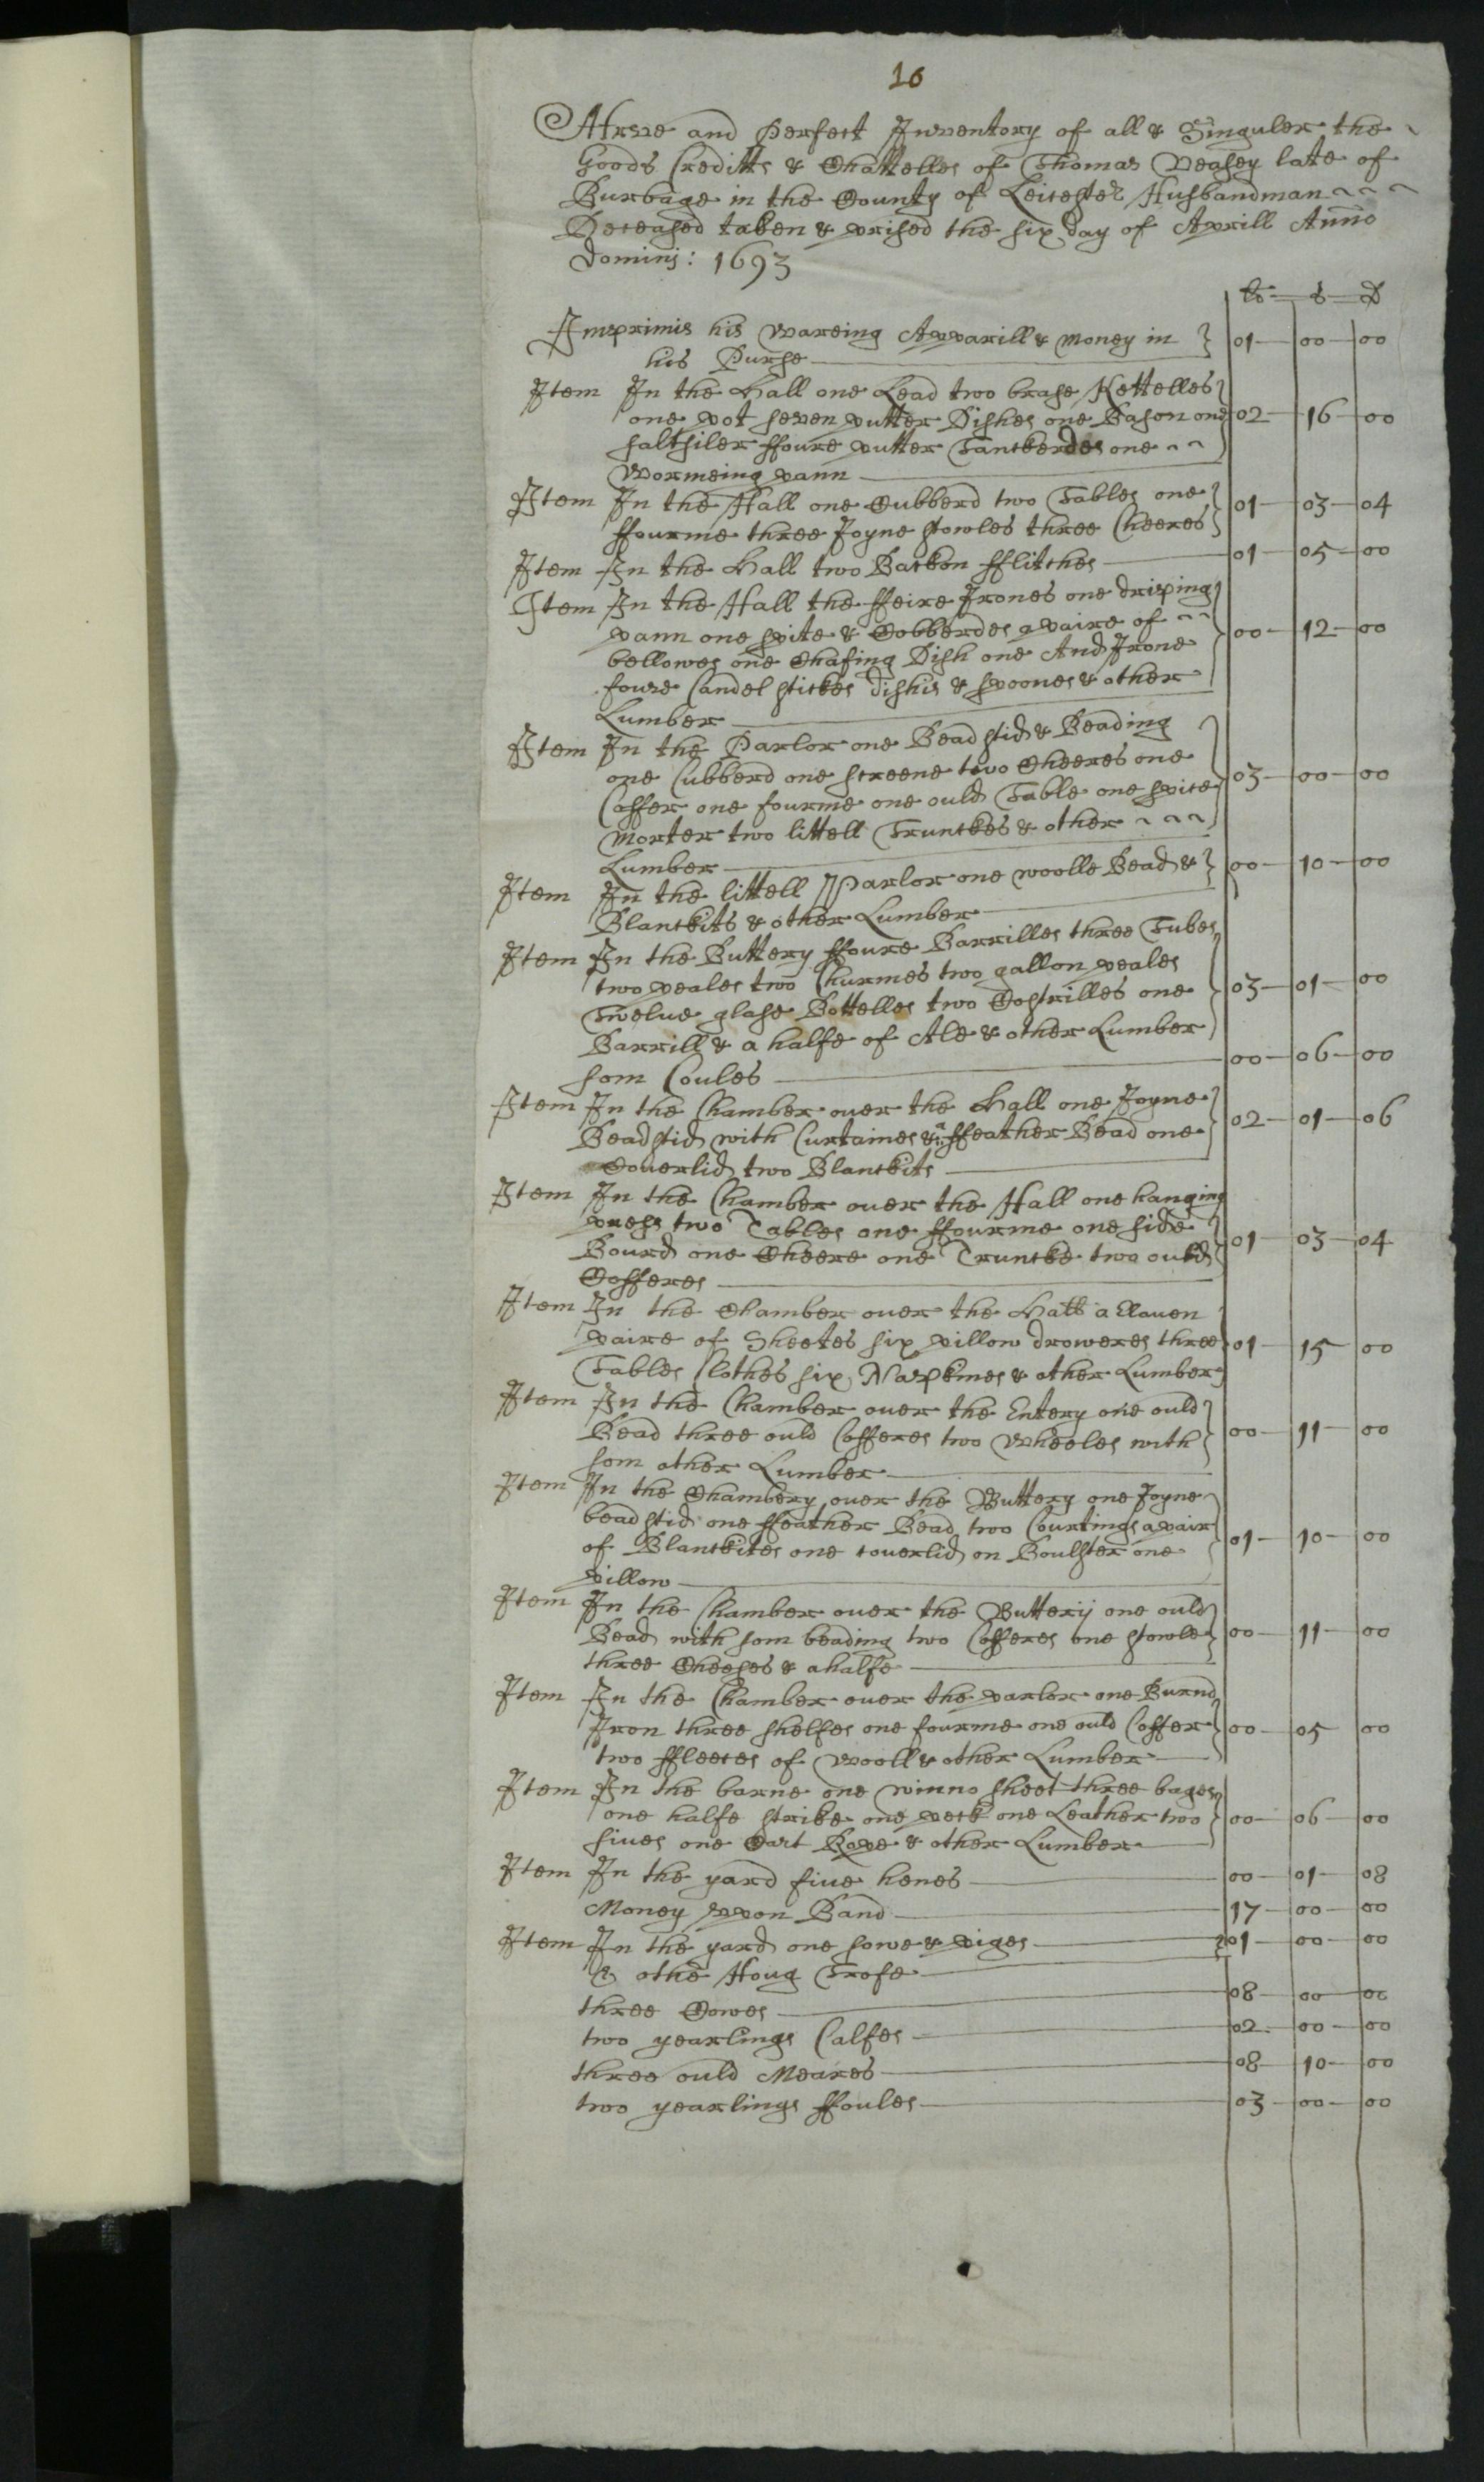 16
A Trwe and Perfect Inventory of all & Singuler the
Goods Creditts & Chattelles of Thomas Veasey late of
Burbage in the County of Leicester Husbandman
Deceased taken & prised the six day of Aprill Anno
Domini: 1693
lb s d
Imprimis his Wareing Apparill & money in 01 00 00
his Purse
Item In the Hall one Lead two brase Kettelles
one pot seven putter Dishes one Bason one 02 16 00
saltsiler ffoure putter Tanckerdes one
Wormeing pann
Item In the Hall one Cubberd two Tables one 01 03 04
ffourme three Joyne stowles three Cheeres
Item In the Hall two Backon fflitches 01 05 00
Item In the Hall the ffeire Irones one driping
pann one spite & Cobberdes a paire of 00 12 00
bellowes one Chafing Dish one And Irone
foure Candel stickes dishis & spoones & other
Lumber
Item In the Parlor one Bead stid & Beading
one Cubberd one screene two Cheeres one 03 00 00
Coffer one fourme one ould Table one spice
Morter two littell Trunckes & other
Lumber
Item In the littell Parlor one woolle Bead & 00 10 00
Blanckits & other Lumber
Item In the Buttery ffoure Barrilles three Tubes
two peales two Churmes two gallon peales
Twelve glase Bottelles two Costrilles one 03 01 00
Barrill & a halfe of Ale & other Lumber
som Coules 00 06 00
Item In the Chamber over the Hall one Joyne
Bead stid with Curtaines & a ffeather Bead one 02 01 06
Coverlid two Blanckits
Item In the Chamber over the Hall one hanging
press two Tables one ffourme one side
Bourd one Cheere one Truncke two ould 01 03 04
Cofferes
Item In the Chamber over the Hall a Elaven
paire of Sheetes six pillow droweres three 01 15 00
Tables Clothes six Napkines & other Lumber
Item In the Chamber over the Entery one ould
Bead three ould Cofferes two Wheeles with 00 11 00
som other Lumber
Item In the Chambery over the Buttery one Joyne
bead stid one ffeather Bead two Courtings a pair
of Blanckites one coverlid on Boulster one 01 10 00
pillow
Item In the Chamber over the Buttery one ould
Bead with som beading two Cofferes one stowle 00 11 00
three Cheeses & a halfe
Item In the Chamber over the parlor one Burnd
Iron three shelfes one fourme one ould Coffer 00 05 00
two ffleeces of Wooll & other Lumber
Item In the barne one winno sheet three bages
one halfe strike one peck one Leather two 00 06 00
sives one Cart Rope & other Lumber
Item In the yard five henes 00 01 08
Money uppon Band 17 00 00
Item In the yard one sowe & piges 01 00 00
& othe Houg Trofe
three Cowes 08 00 00
two yearlings Calfes 02 00 00
three ould Meares 08 10 00
two yearlings ffoules 03 00 00